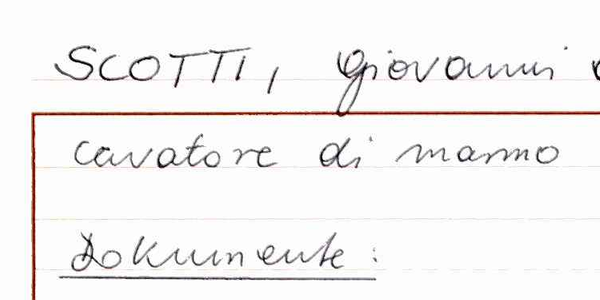 SCOTTI, Giovanni
cavatore di marmo
Dokumente: